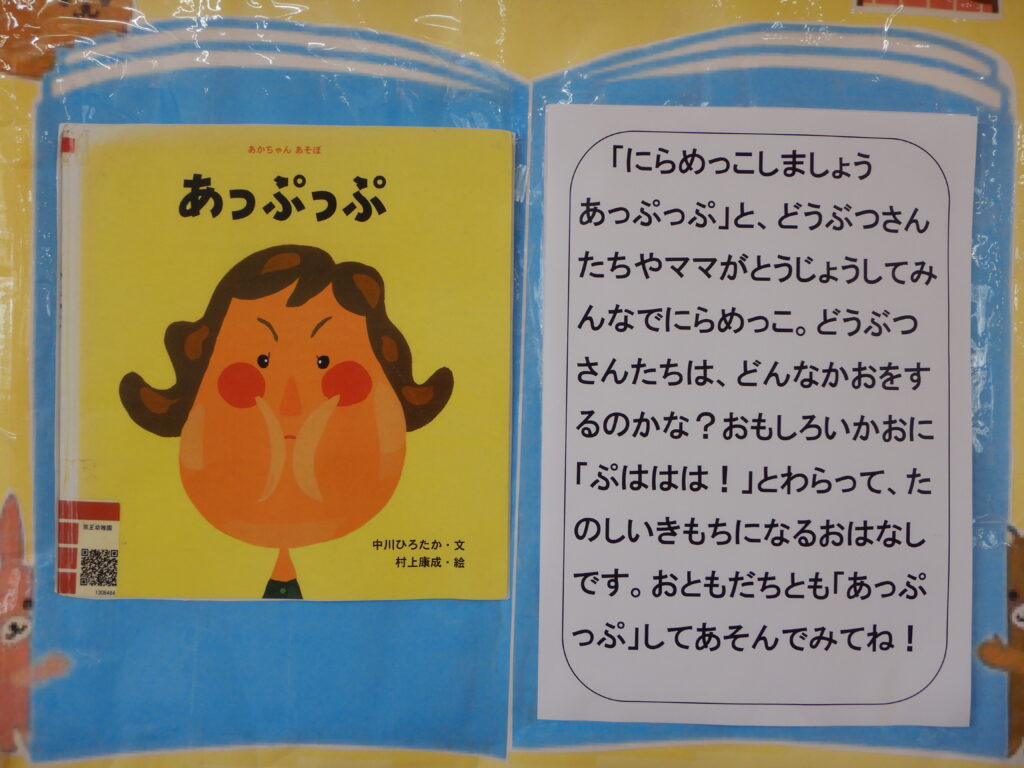 あかちゃん あそぼ
あっぷっぷ
中川ひろたか・文
村上康成・絵
1308464
「にらめっこしましょう
あっぷっぷ」と、どうぶつさん
たちやママがとうじょうしてみ
んなでにらめっこ。どうぶつ
さんたちは、どんなかおをす
るのかな？おもしろいかおに
「ぷははは！」とわらって、た
のしいきもちになるおはなし
です。おともだちとも「あっぷ
っぷ」してあそんでみてね！